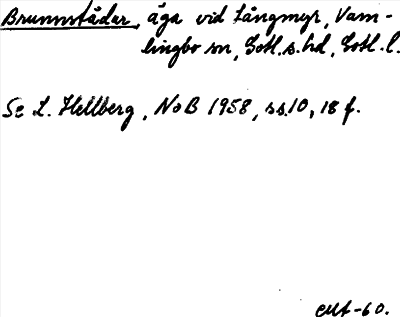 Brunnstädar, äga vid Långmyr, Vam-
lingbo sn, Gotl. s. hd, Gotl. l.
Se L. Hellberg, NoB 1958, ss. 10, 18 f.
-60.